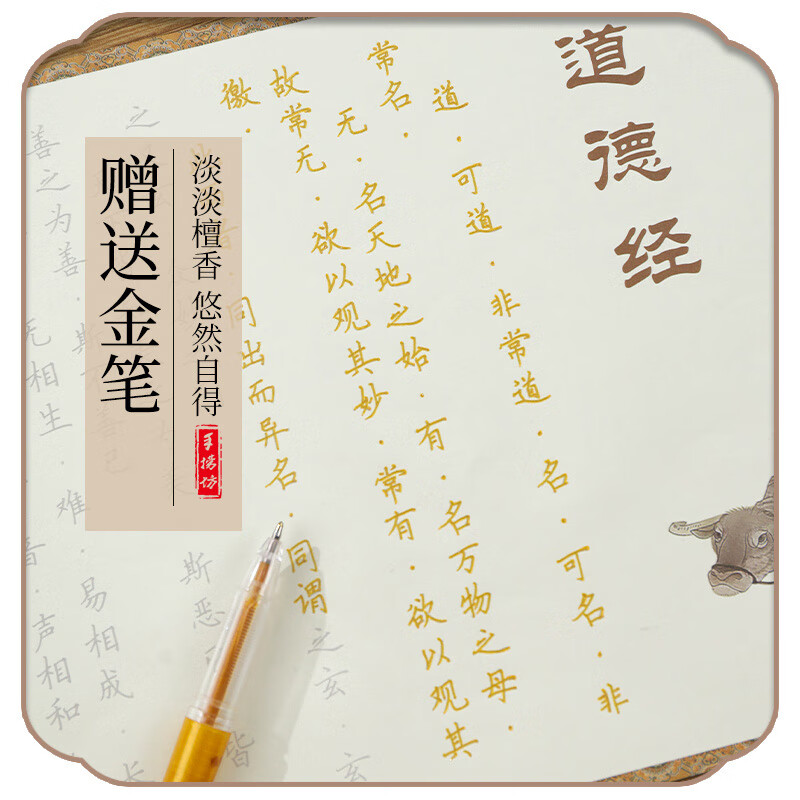 道德经
道.可道.非常道.名.可名.非
常名.无.名天地之始.有.名万物之母.
故常无.欲以观其妙.常有.欲以观其
徼.
同出而异名.同谓之玄.玄
之
斯恶
皆
善之为善.斯不善已
无相生.难.易相成.长
音.声相和.
淡淡檀香 悠然自得
手捞坊
赠送金笔